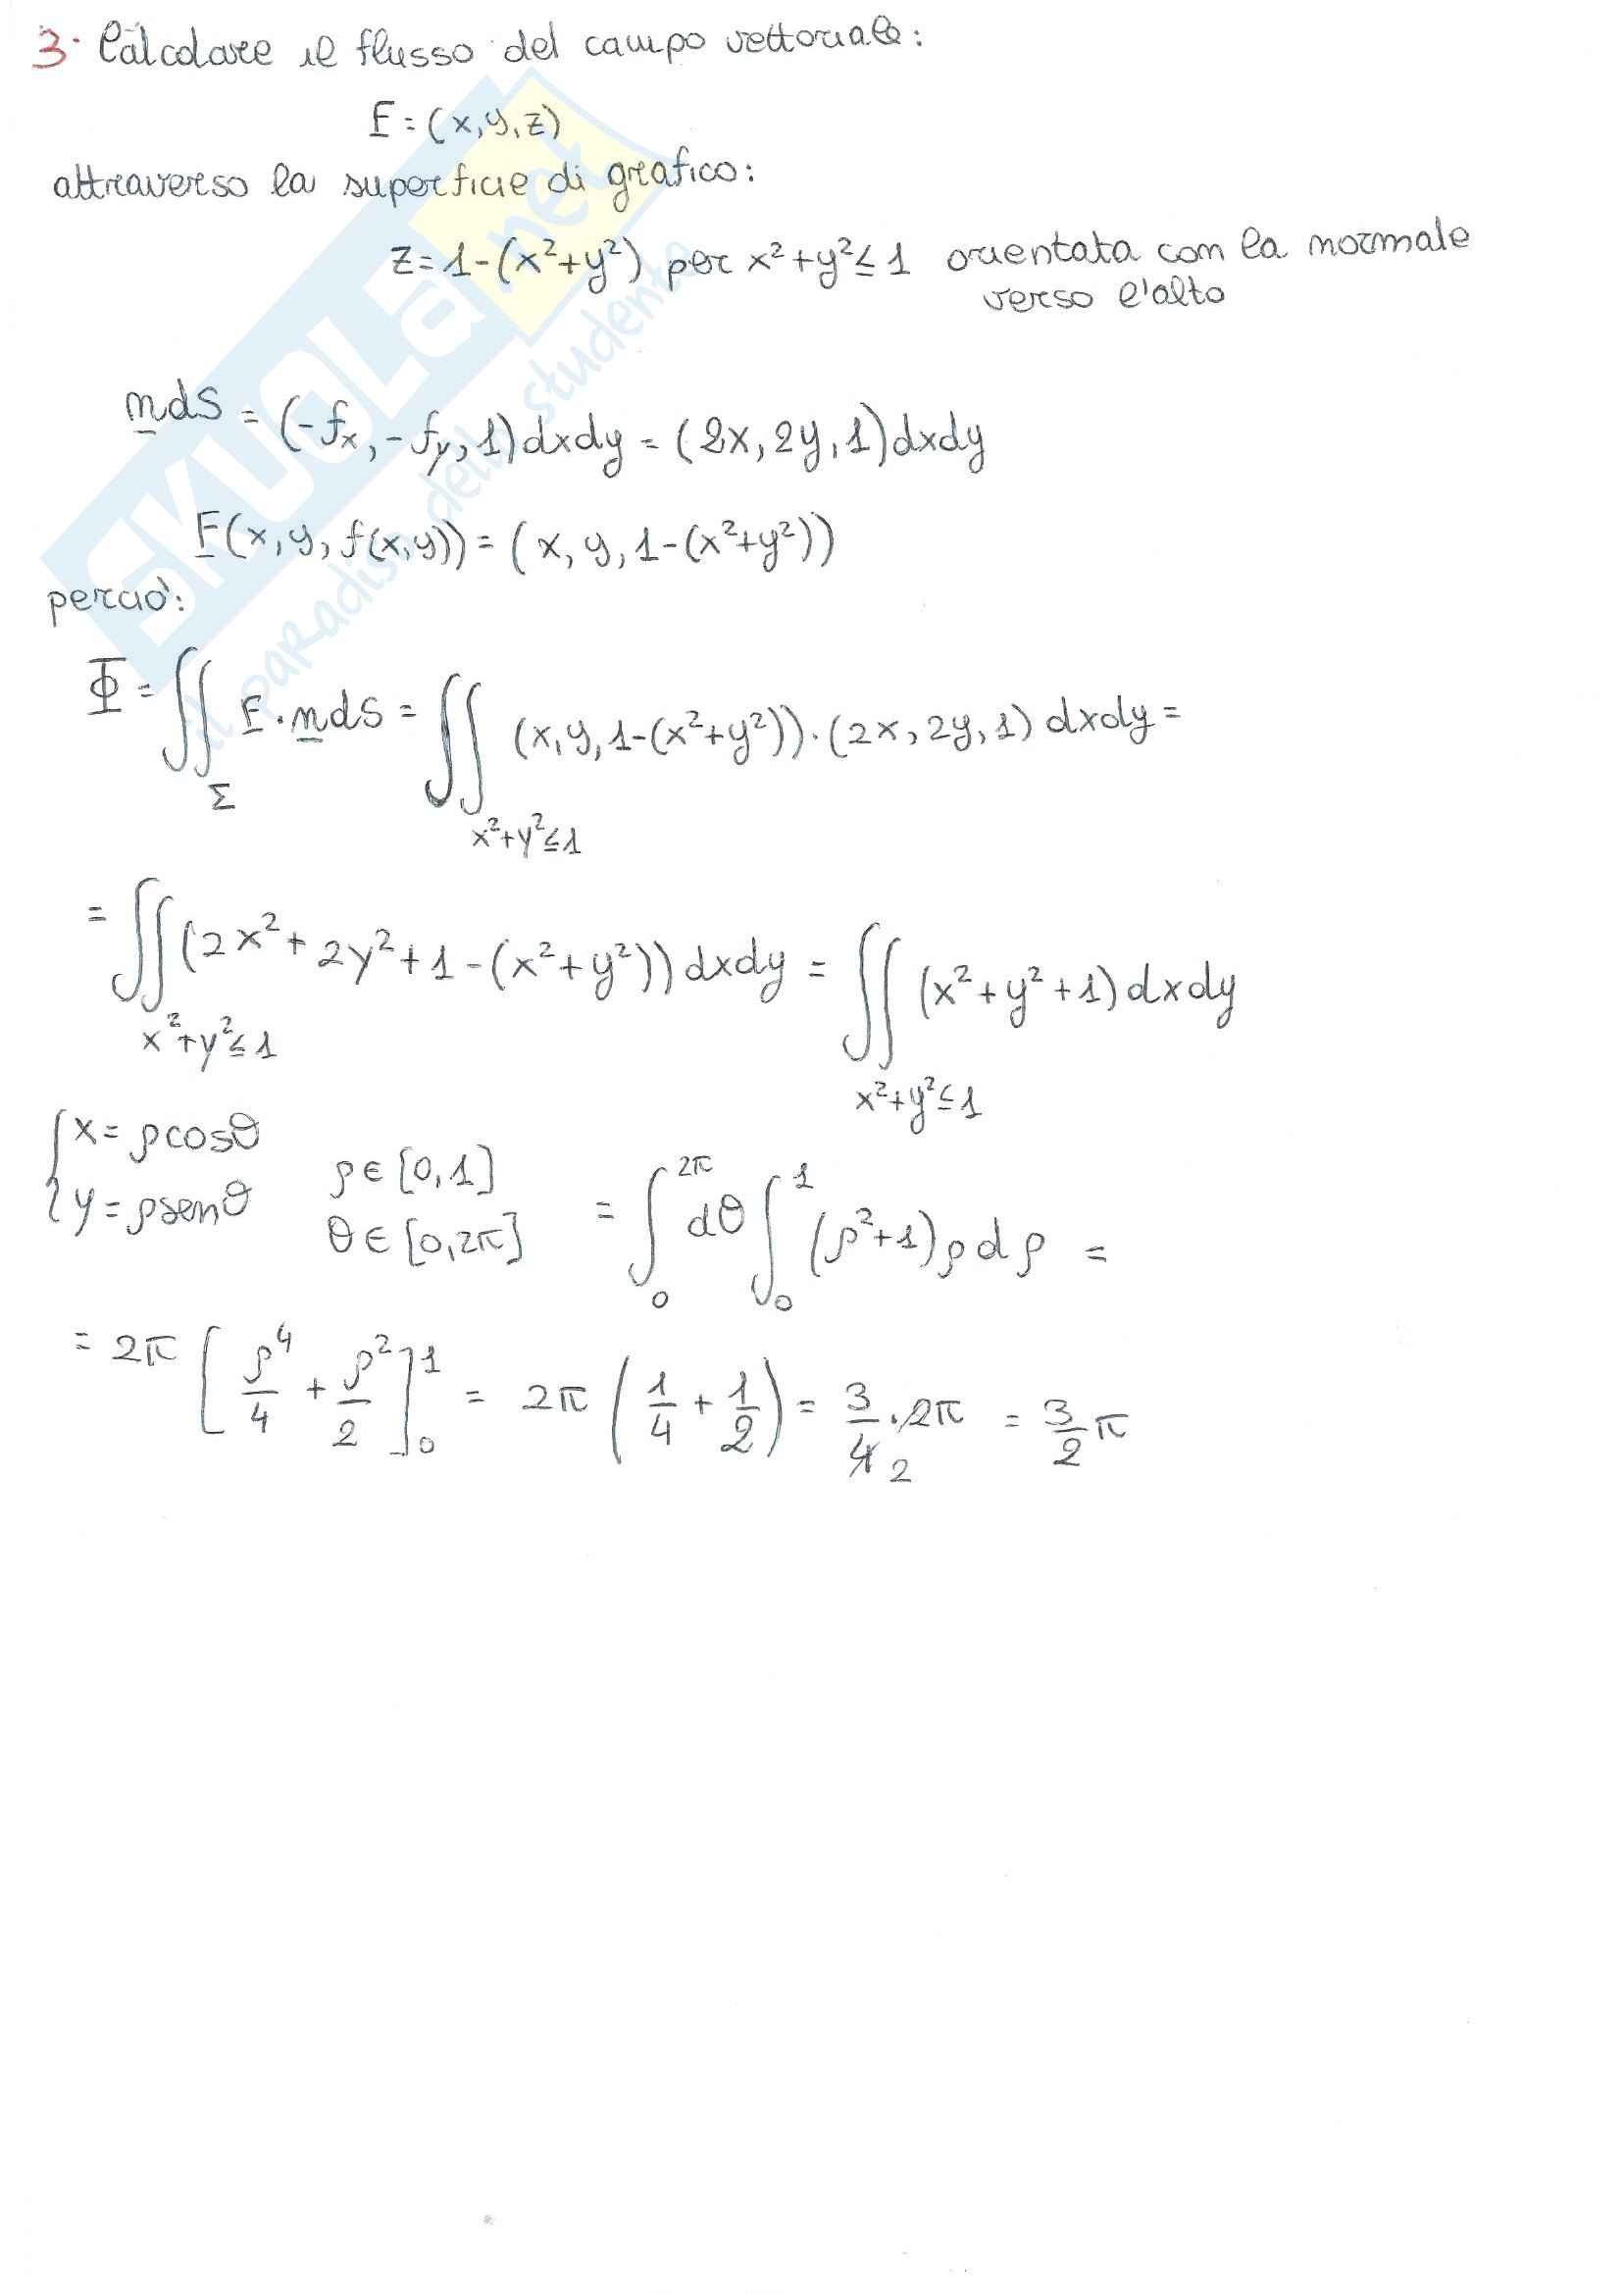 3. Calcolare il flusso del campo vettoriale:
F = (x, y, z)
attraverso la superficie di grafico:
z = 1-(x²+y²) per x²+y² ≤ 1 orientata con la normale
verso l'alto
n dS = (-fx, -fy, 1) dxdy = (2x, 2y, 1) dxdy
F(x, y, f(x,y)) = (x, y, 1-(x²+y²))
perciò:
Φ = ∬ F · n dS = ∬ (x, y, 1-(x²+y²)) · (2x, 2y, 1) dxdy =
Σ
x²+y² ≤ 1
= ∬ (2x² + 2y² + 1 - (x²+y²)) dxdy = ∬ (x² + y² + 1) dxdy
x²+y² ≤ 1
x²+y² ≤ 1
{ x = ρcosθ
y = ρsenθ
ρ ∈ [0,1]
θ ∈ [0,2π]
= ∫₀^2π dθ ∫₀^1 (ρ²+1) ρ dρ =
= 2π [ρ⁴/4 + ρ²/2]₀¹ = 2π (1/4 + 1/2) = 3/4 2 · 2π = 3/2 π
SKUOLA.net
il paradiso dello studente